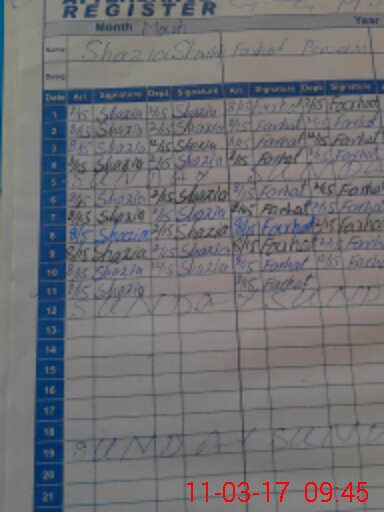 REGISTER
Month March Year
Name Shazia Shaikh Farhat Parveen
Desig
Date Arr. Signature Dept. Signature Arr. Signature Dept. Signature
1 8/15 Shazia 2/15 Shazia 8/15 Farhat 2/15 Farhat
2 8/15 Shazia 2/15 Shazia 8/15 Farhat Farhat
3 8/15 Shazia 12/15 Shazia 8/15 Farhat 12/15 Farhat
4 8/15 Shazia 2/15 Shazia 8/15 Farhat Farhat
5 SUNDAY SUNDAY
6 8/15 Shazia 2/15 Shazia 8/15 Farhat 2/15 Farhat
7 8/15 Shazia 2/15 Shazia 8/15 Farhat 2/15 Farhat
8 8/15 Shazia 2/15 Shazia 8/15 Farhat 2/15 Farhat
9 8/15 Shazia 2/15 Shazia 8/15 Farhat 2/15 Farhat
10 8/15 Shazia 12/15 Shazia 8/15 Farhat 12/15 Farhat
11 8/15 Shazia 8/15 Farhat
12 SUNDAY SUND
13
14
15
16
17
18
19 SUNDAY SUND
20
21
11-03-17 09:45